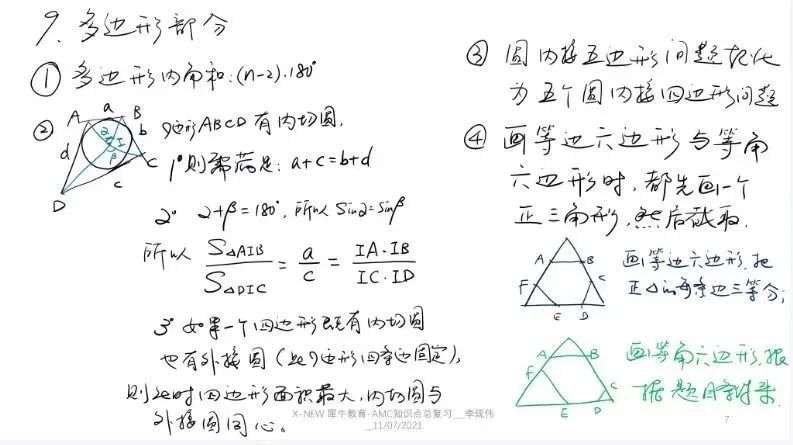 9. 多边形部分
① 多边形内角和:(n-2)·180°
②
A a B
b
I
α
β
d
C
c
D
四边形ABCD有内切圆.
1°则需满足: a+c=b+d
2° α+β=180°, 所以 sinα=sinβ
所以 S△AIB/S△DIC = a/c = IA·IB/IC·ID
3° 如果一个四边形既有内切圆
也有外接圆(此四边形四条边固定),
则此时四边形面积最大,内切圆与
外接圆同心。
③ 圆内接五边形问题转化
为五个圆内接四边形问题
④ 画等边六边形与等角
六边形时,都先画一个
正三角形,然后截取.
A B
F C
E D
画等边六边形,把
正△的每条边三等分;
A B
F C
E D
画等角六边形,根
据题目条件来.
X-NEW 犀牛教育-AMC知识点总复习__李现伟
__11/07/2021
7